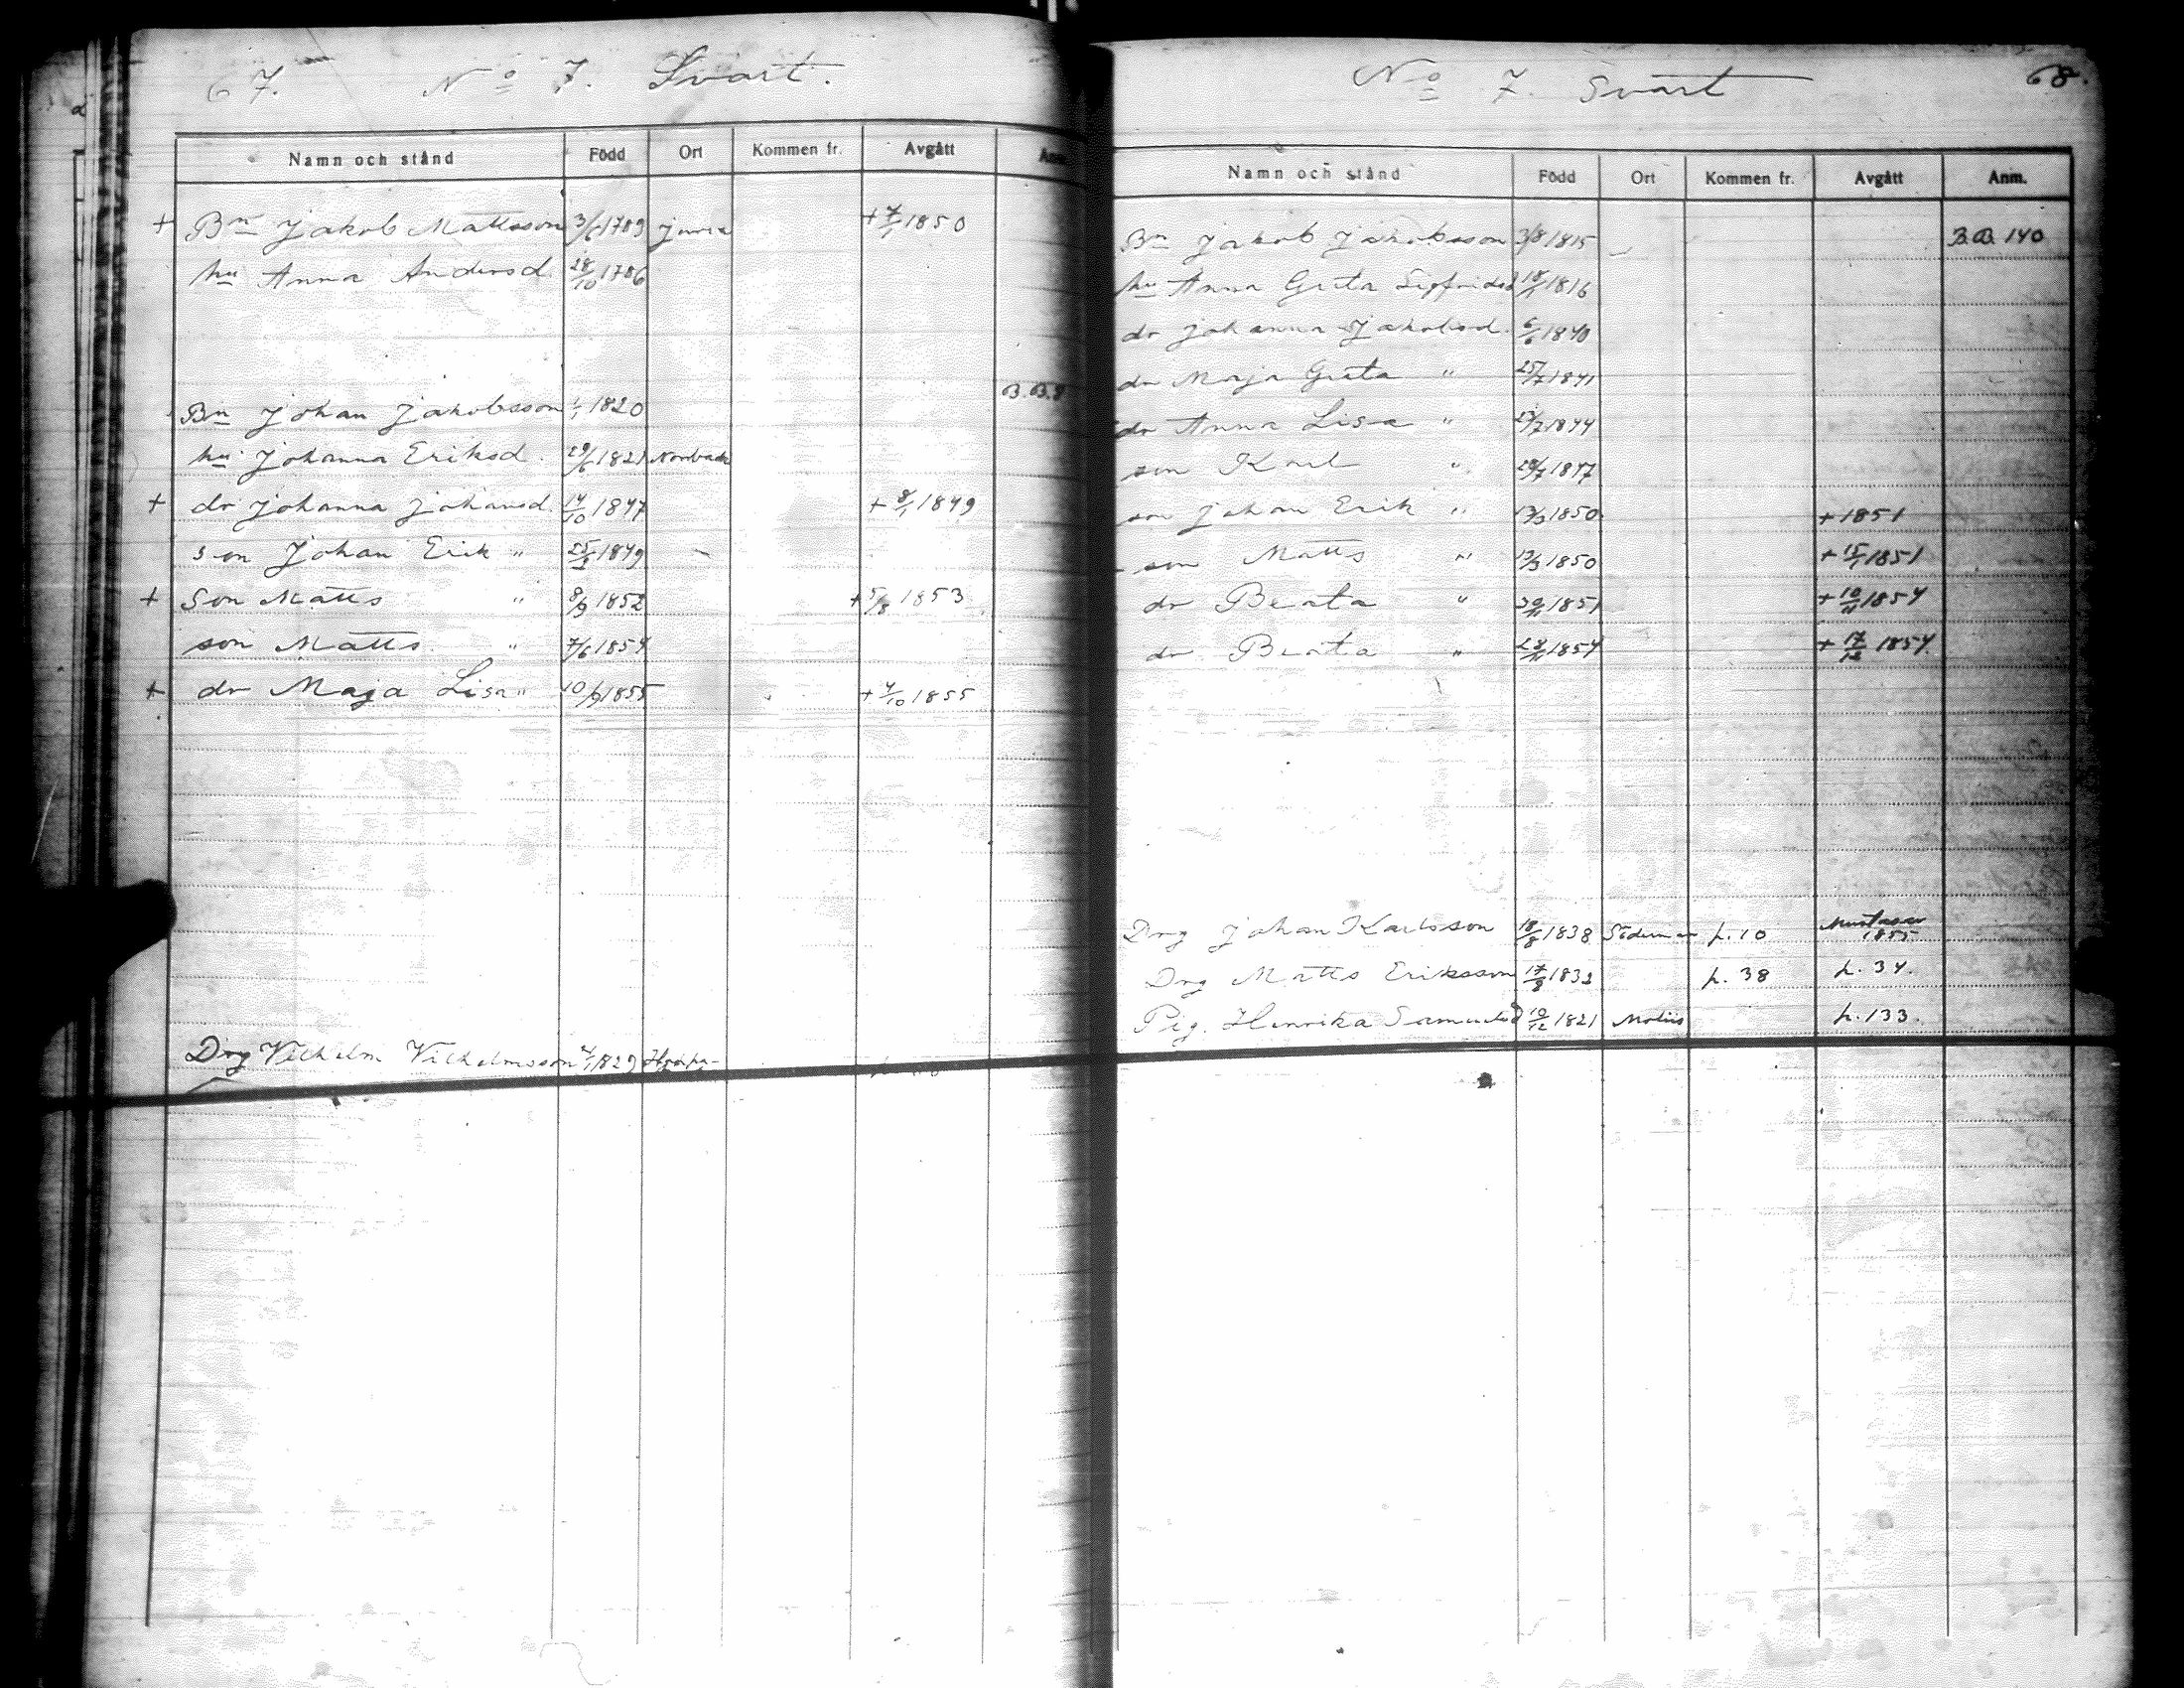 67. No 7. Svart.
Namn och stånd Född Ort Kommen fr. Avgått Anm.
+ Bn Jakob Mattsson 3/6 1789 Junia + 7/1 1850
hu Anna Andersd. 28/10 1786
B.B.
Bn Johan Jakobsson 1/1 1820
hu Johanna Eriksd. 29/6 1821 Norrback
+ dr Johanna Johansd. 14/10 1847 + 8/1 1849
son Johan Erik " 25/3 1849 -
+ Son Matts " 8/9 1852 + 5/8 1853
son Matts " 7/6 1854
+ dr Maja Lisa " 10/9 1855 + 4/10 1855
Drg Vilhelm Vilhelmsson 1829
No 7. Svart 68.
Namn och stånd Född Ort Kommen fr. Avgått Anm.
Bn Jakob Jakobsson 3/8 1815 B.B. 140
hu Anna Greta Sigfridsd 18/1 1816
dr Johanna Jakobsd. 6/6 1840
dr Maja Greta " 25/7 1841
dr Anna Lisa " 1844
son Karl " 28/7 1847
son Johan Erik " 13/3 1850 + 1851
son Matts " 13/3 1850 + 15/1 1851
dr Beata " 30/11 1851 + 10/11 1854
dr Beata " 1854 + 17/12 1854
Drg Johan Karlsson 18/8 1838 p. 10 1855
Drg Matts Eriksson 17/8 1832 p. 38 p. 34.
Pig. Henrika Samuelsd 10/12 1821 p. 133.